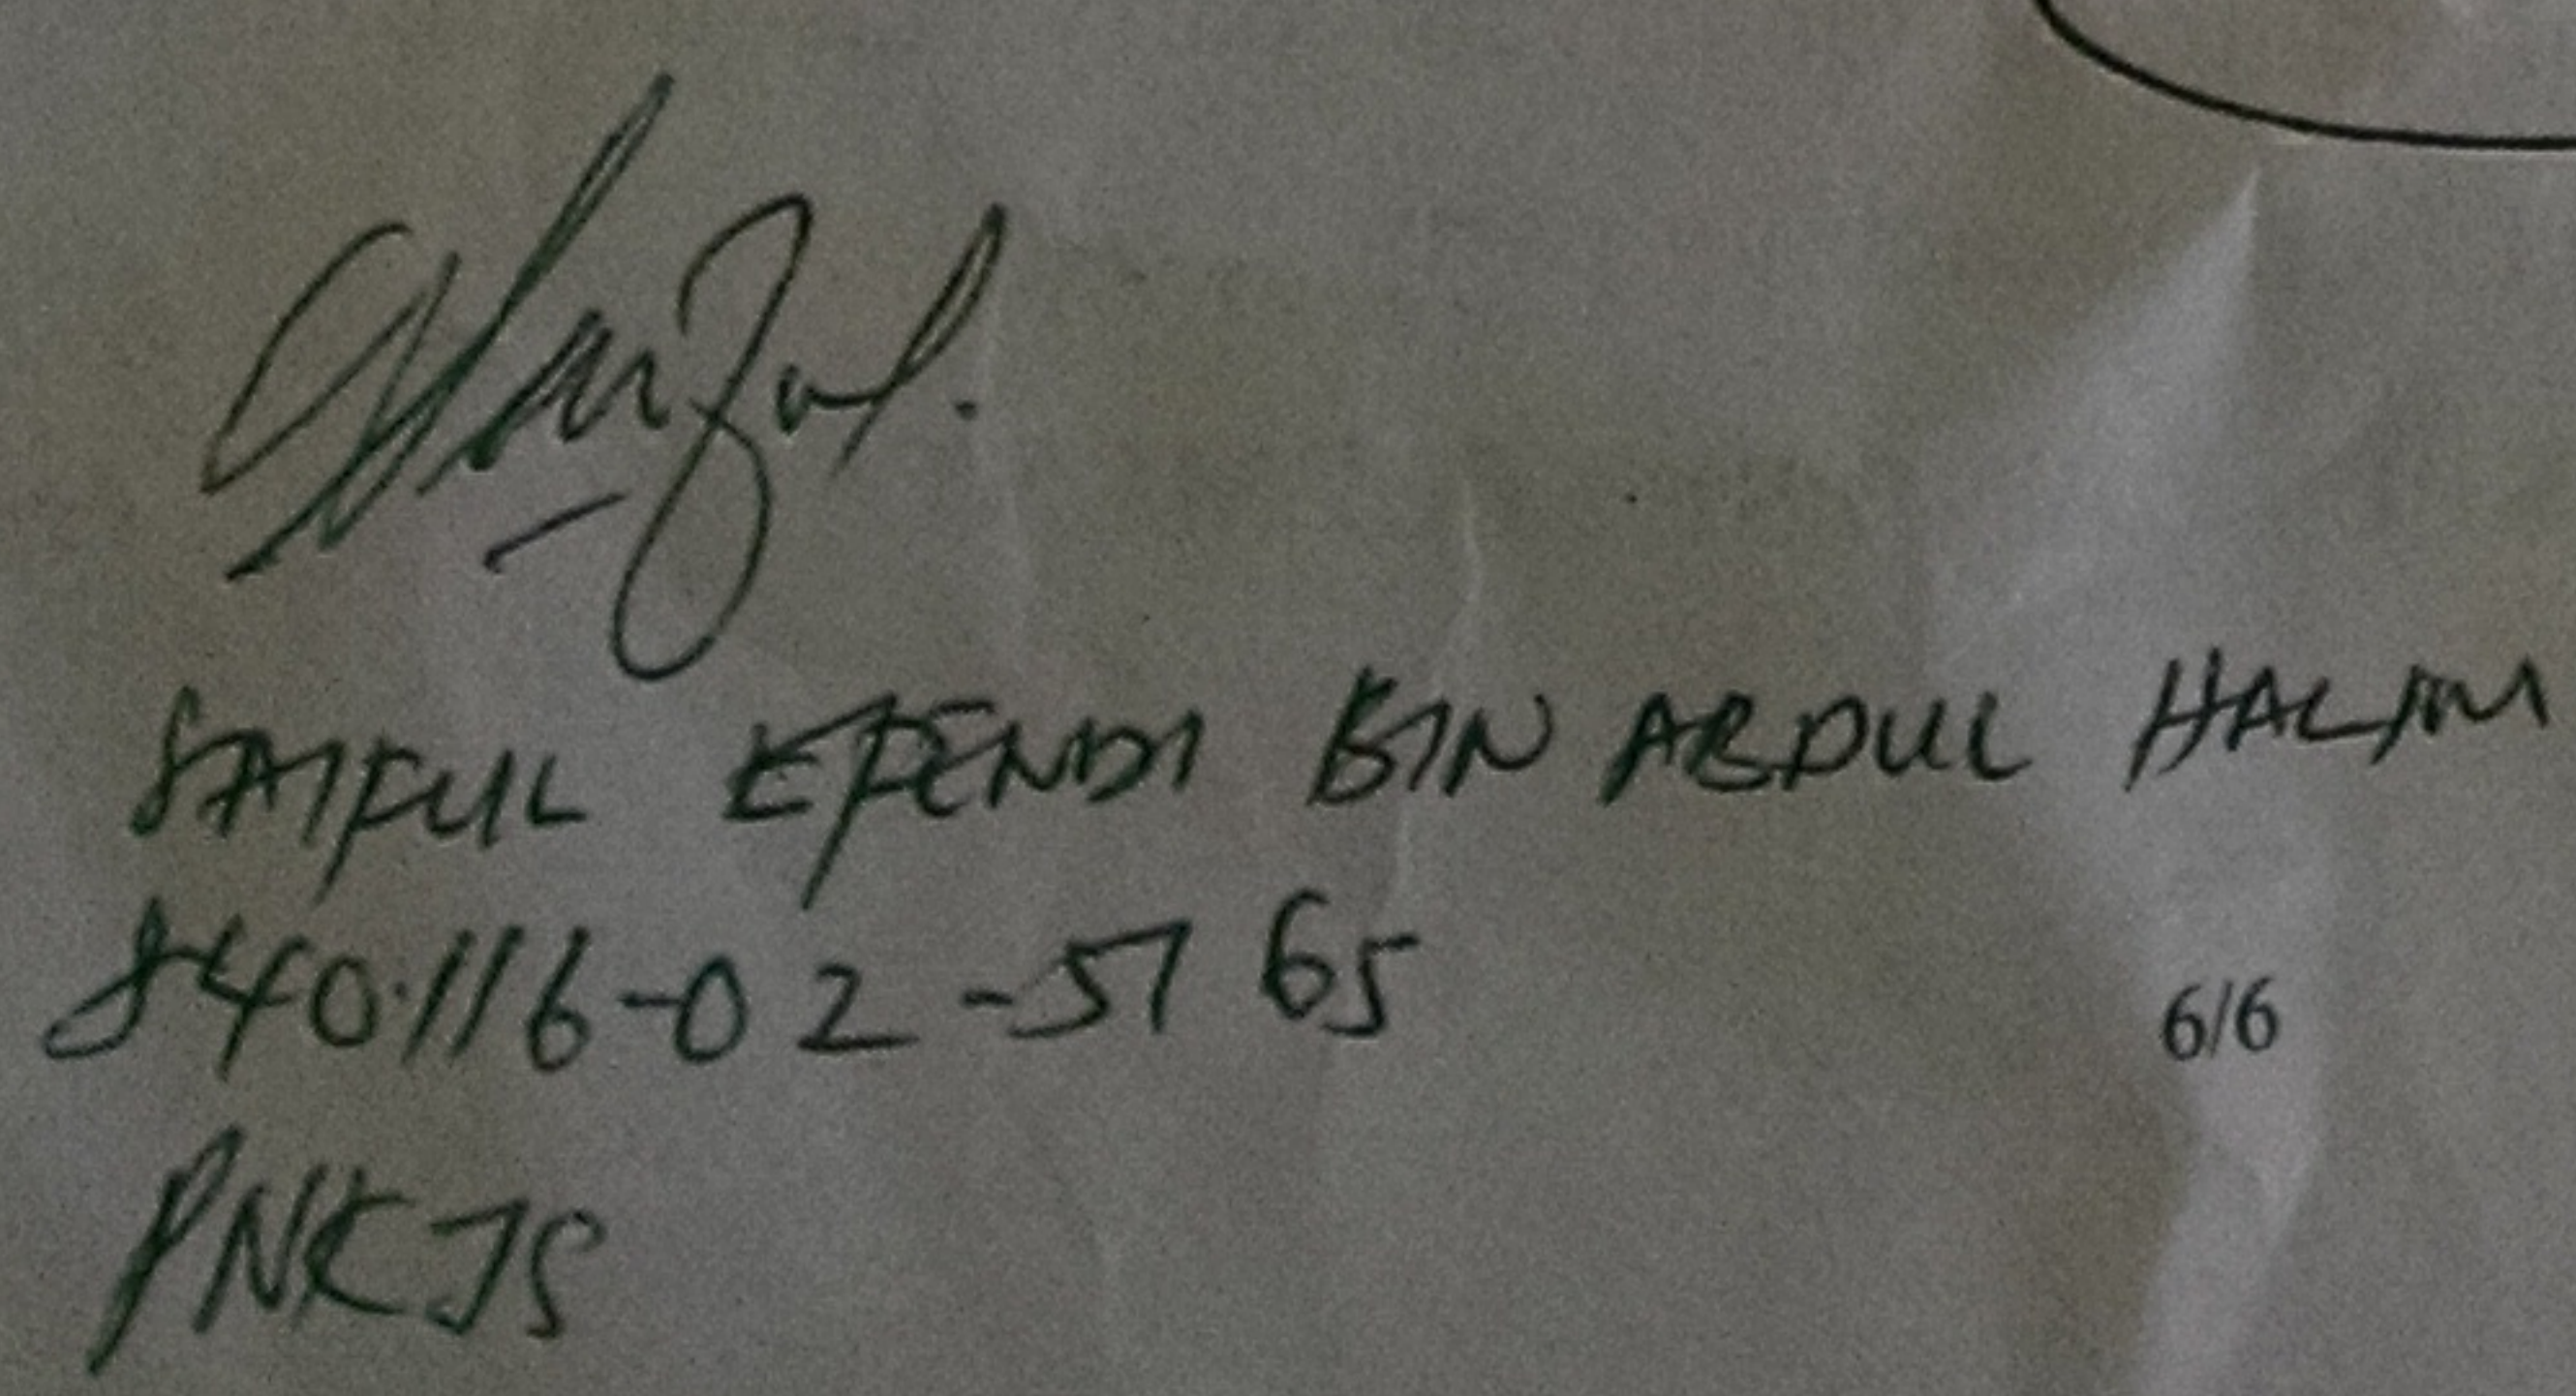 SAIFUL EFENDI BIN ABDUL HALIM
840116-02-5765
6/6
PNKJS